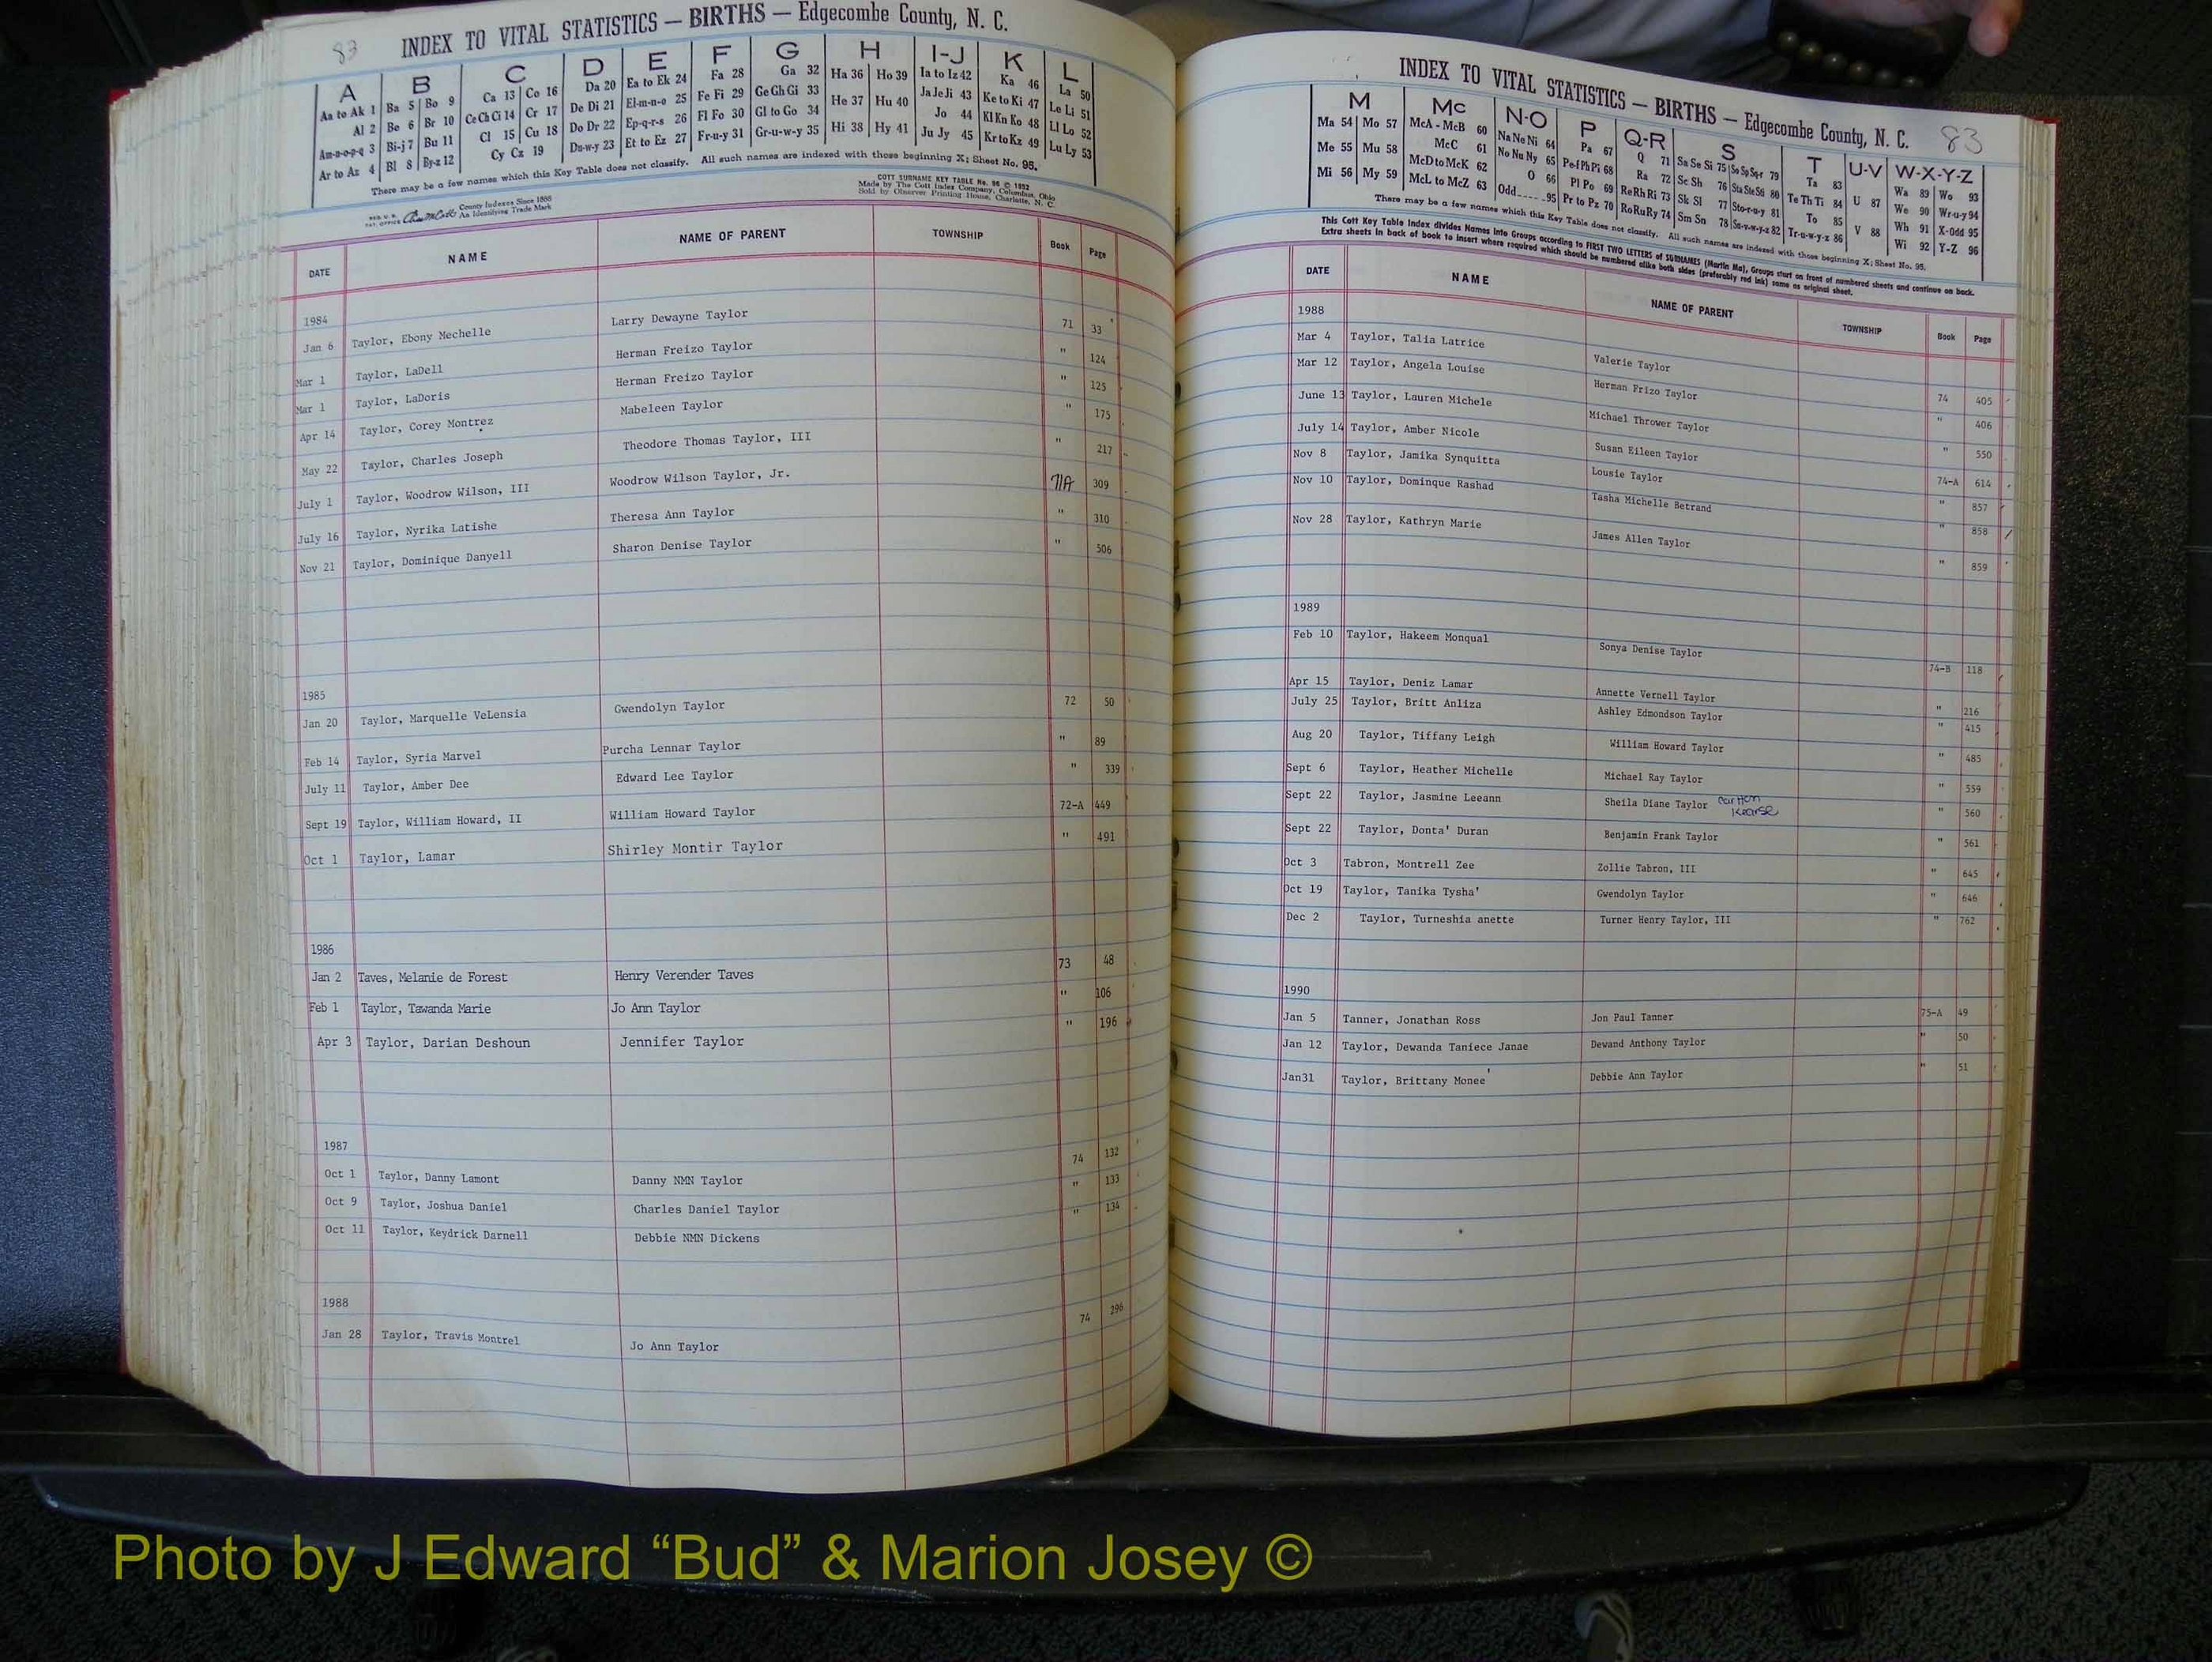 83
INDEX TO VITAL STATISTICS — BIRTHS — Edgecombe County, N. C.
A B C D E F G H I-J K L
Aa to Ak 1 Ba 5 Bo 9 Ca 13 Co 16 Da 20 Ea to Ek 24 Fa 28 Ga 32 Ha 36 Ho 39 Ia to Iz 42 Ka 46 La 50
Al 2 Be 6 Br 10 Ce Ch Ci 14 Cr 17 De Di 21 El-m-n-o 25 Fe Fi 29 Ge Gh Gi 33 He 37 Hu 40 Ja Je Ji 43 Ke to Ki 47 Le Li 51
Am-n-o-p-q 3 Bi-j 7 Bu 11 Cl 15 Cu 18 Do Dr 22 Ep-q-r-s 26 Fl Fo 30 Gl to Go 34 Hi 38 Hy 41 Jo 44 Kl Kn Ko 48 Ll Lo 52
Ar to Az 4 Bl 8 By-z 12 Cy Cz 19 Du-w-y 23 Et to Ez 27 Fr-u-y 31 Gr-u-w-y 35 Ju Jy 45 Kr to Kz 49 Lu Ly 53
There may be a few names which this Key Table does not classify. All such names are indexed with those beginning X; Sheet No. 95.
County Indexes Since 1888
An Identifying Trade Mark
COTT SURNAME KEY TABLE No. 96 © 1952
Made by The Cott Index Company, Columbus, Ohio
Sold by Observer Printing House, Charlotte, N. C.
DATE NAME NAME OF PARENT TOWNSHIP Book Page
1984
Jan 6 Taylor, Ebony Mechelle Larry Dewayne Taylor 71 33
Mar 1 Taylor, LaDell Herman Freizo Taylor " 124
Mar 1 Taylor, LaDoris Herman Freizo Taylor " 125
Apr 14 Taylor, Corey Montrez Mabeleen Taylor " 175
May 22 Taylor, Charles Joseph Theodore Thomas Taylor, III " 217
July 1 Taylor, Woodrow Wilson, III Woodrow Wilson Taylor, Jr. 71A 309
July 16 Taylor, Nyrika Latishe Theresa Ann Taylor " 310
Nov 21 Taylor, Dominique Danyell Sharon Denise Taylor " 506
1985
Jan 20 Taylor, Marquelle VeLensia Gwendolyn Taylor 72 50
Feb 14 Taylor, Syria Marvel Purcha Lennar Taylor " 89
July 11 Taylor, Amber Dee Edward Lee Taylor " 339
Sept 19 Taylor, William Howard, II William Howard Taylor 72-A 449
Oct 1 Taylor, Lamar Shirley Montir Taylor " 491
1986
Jan 2 Taves, Melanie de Forest Henry Verender Taves 73 48
Feb 1 Taylor, Tawanda Marie Jo Ann Taylor " 106
Apr 3 Taylor, Darian Deshoun Jennifer Taylor " 196
1987
Oct 1 Taylor, Danny Lamont Danny NMN Taylor 74 132
Oct 9 Taylor, Joshua Daniel Charles Daniel Taylor " 133
Oct 11 Taylor, Keydrick Darnell Debbie NMN Dickens " 134
1988
Jan 28 Taylor, Travis Montrel Jo Ann Taylor 74 296
INDEX TO VITAL STATISTICS — BIRTHS — Edgecombe County, N. C. 83
M Mc N-O P Q-R S T U-V W-X-Y-Z
Ma 54 Mo 57 McA - McB 60 Na Ne Ni 64 Pa 67 Q 71 Sa Se Si 75 So Sp Sq-r 79 Ta 83 U 87 Wa 89 Wo 93
Me 55 Mu 58 McC 61 No Nu Ny 65 Pe-f Ph Pi 68 Ra 72 Sc Sh 76 Sta Ste Sti 80 Te Th Ti 84 V 88 We 90 Wr-u-y 94
Mi 56 My 59 McD to McK 62 O 66 Pl Po 69 Re Rh Ri 73 Sk Sl 77 Sto-r-u-y 81 To 85 Wh 91 X-Odd 95
McL to McZ 63 Odd 95 Pr to Pz 70 Ro Ru Ry 74 Sm Sn 78 Su-v-w-y-z 82 Tr-u-w-y-z 86 Wi 92 Y-Z 96
There may be a few names which this Key Table does not classify. All such names are indexed with those beginning X; Sheet No. 95.
This Cott Key Table Index divides Names into Groups according to FIRST TWO LETTERS of SURNAMES (Martin Ma), Groups start on front of numbered sheets and continue on back.
Extra sheets in back of book to insert where required which should be numbered alike both sides (preferably red ink) same as original sheet.
DATE NAME NAME OF PARENT TOWNSHIP Book Page
1988
Mar 4 Taylor, Talia Latrice Valerie Taylor 74 405
Mar 12 Taylor, Angela Louise Herman Frizo Taylor " 406
June 13 Taylor, Lauren Michele Michael Thrower Taylor " 550
July 14 Taylor, Amber Nicole Susan Eileen Taylor 74-A 614
Nov 8 Taylor, Jamika Synquitta Lousie Taylor " 857
Nov 10 Taylor, Dominque Rashad Tasha Michelle Betrand " 858
Nov 28 Taylor, Kathryn Marie James Allen Taylor " 859
1989
Feb 10 Taylor, Hakeem Monqual Sonya Denise Taylor 74-B 118
Apr 15 Taylor, Deniz Lamar Annette Vernell Taylor " 216
July 25 Taylor, Britt Anliza Ashley Edmondson Taylor " 415
Aug 20 Taylor, Tiffany Leigh William Howard Taylor " 485
Sept 6 Taylor, Heather Michelle Michael Ray Taylor " 559
Sept 22 Taylor, Jasmine Leeann Sheila Diane Taylor " 560
Sept 22 Taylor, Donta' Duran Benjamin Frank Taylor " 561
Oct 3 Tabron, Montrell Zee Zollie Tabron, III " 645
Oct 19 Taylor, Tanika Tysha' Gwendolyn Taylor " 646
Dec 2 Taylor, Turneshia anette Turner Henry Taylor, III " 762
1990
Jan 5 Tanner, Jonathan Ross Jon Paul Tanner 75-A 49
Jan 12 Taylor, Dewanda Taniece Janae Dewand Anthony Taylor " 50
Jan31 Taylor, Brittany Monee' Debbie Ann Taylor " 51
Photo by J Edward “Bud” & Marion Josey ©